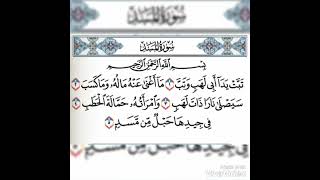 سُورَةُ الْمَسَدِ
سُورَةُ الْمَسَدِ
بِسْمِ اللَّهِ الرَّحْمَٰنِ الرَّحِيمِ
تَبَّتْ يَدَا أَبِي لَهَبٍ وَتَبَّ ١ مَا أَغْنَىٰ عَنْهُ مَالُهُ وَمَا كَسَبَ ٢
سَيَصْلَىٰ نَارًا ذَاتَ لَهَبٍ ٣ وَامْرَأَتُهُ حَمَّالَةَ الْحَطَبِ ٤
فِي جِيدِهَا حَبْلٌ مِّن مَّسَدٍ ٥
فِي جِيدِهَا حَبْلٌ مِّن مَّسَدٍ
VivaVideo